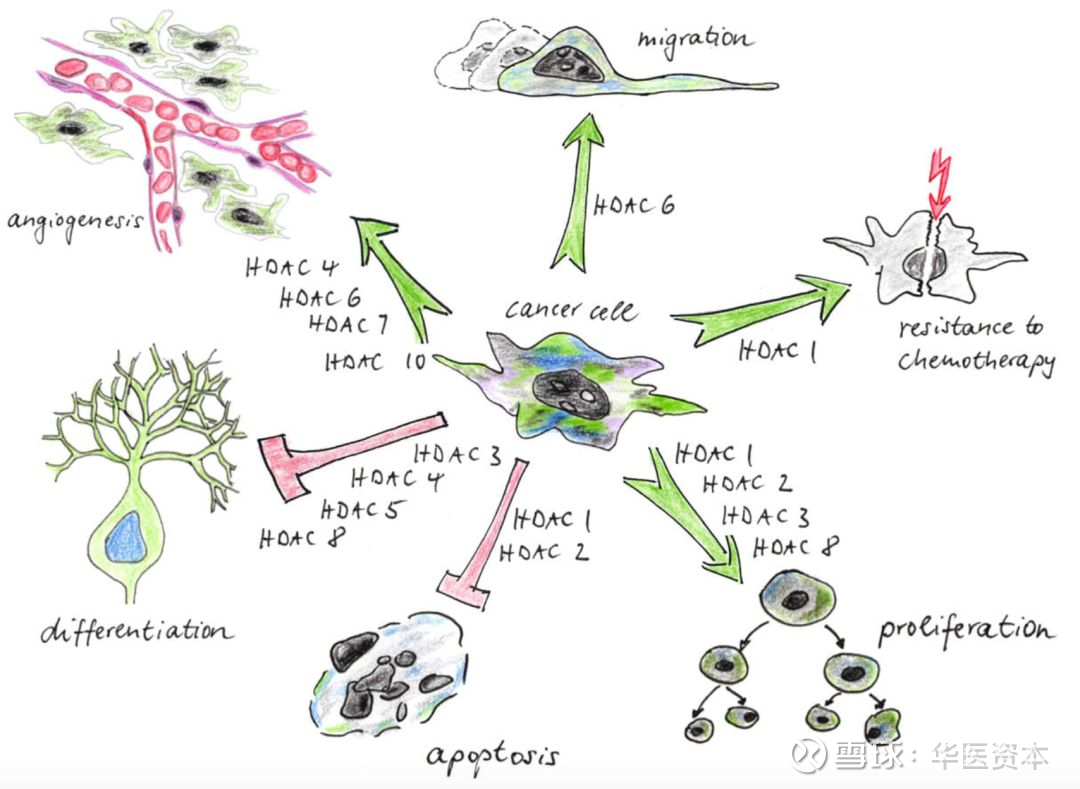 migration
angiogenesis
HDAC 6
HDAC 4
HDAC 6
HDAC 7
HDAC 10
cancer cell
HDAC 1
resistance to
chemotherapy
HDAC 3
HDAC 4
HDAC 5
HDAC 8
HDAC 1
HDAC 2
HDAC 1
HDAC 2
HDAC 3
HDAC 8
differentiation
apoptosis
proliferation
雪球：华医资本